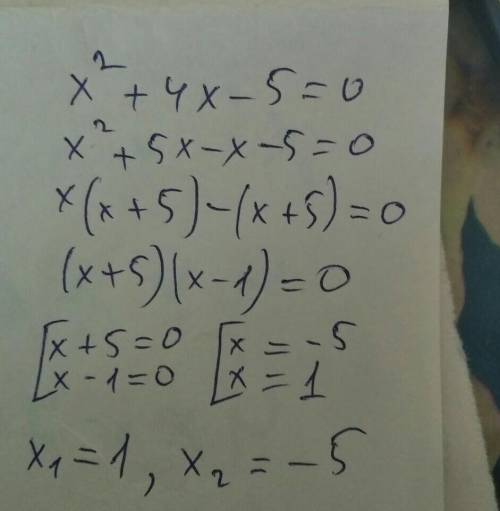 x² + 4x - 5 = 0
x² + 5x - x - 5 = 0
x(x + 5) - (x + 5) = 0
(x + 5)(x - 1) = 0
[x + 5 = 0 [x = -5
[x - 1 = 0 [x = 1
x₁ = 1, x₂ = -5